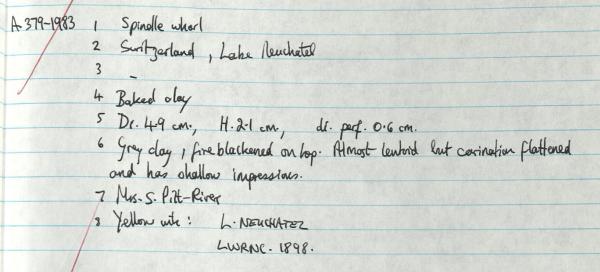 A 379-1983 1 Spindle whorl
2 Switzerland, Lake Neuchatel
3 -
4 Baked clay
5 Di. 4.9 cm., H. 2.1 cm., di. perf. 0.6 cm.
6 Grey clay, fire blackened on top. Almost lentoid but carination flattened
and has shallow impressions.
7 Mrs. S. Pitt-River
8 Yellow ink: L. NEUCHATEL
LWRNC. 1898.